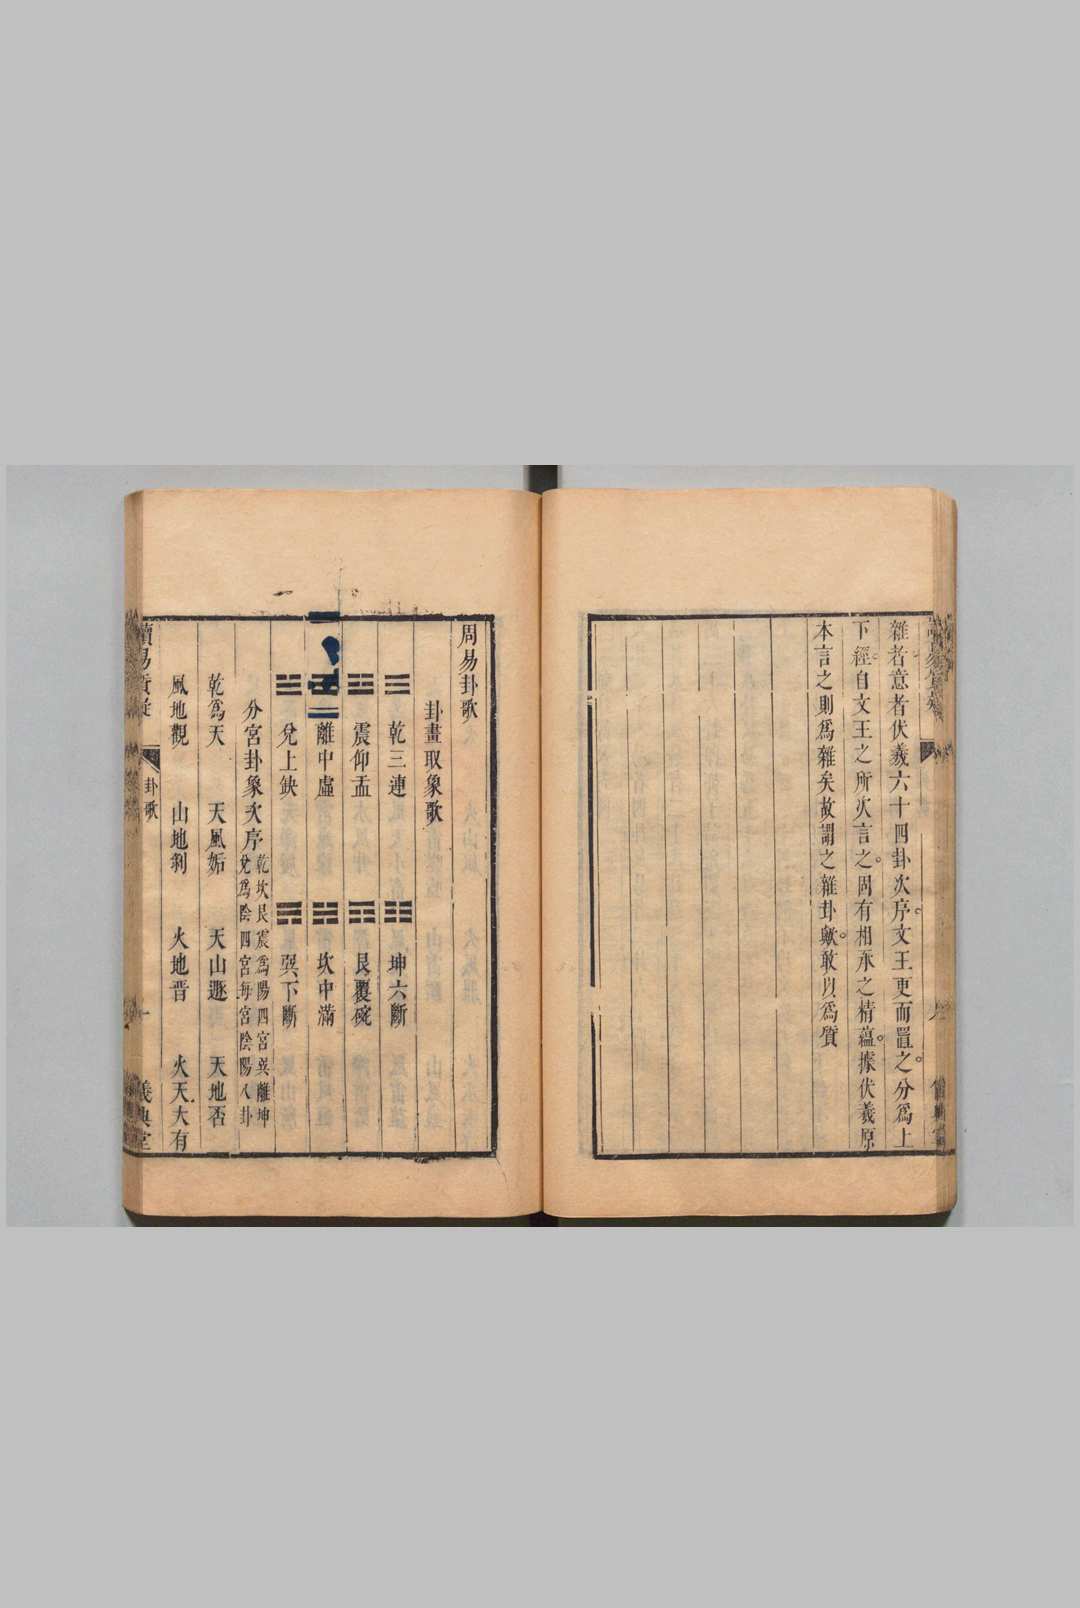 雜者意者伏羲六十四卦次序文王更而置之分爲上
下經自文王之所次言之固有相承之情蘊據伏羲原
本言之則爲雜矣故謂之雜卦歟敢以爲質
周易卦歌
卦畫取象歌
☰乾三連 ☷坤六斷
☳震仰盂 ☶艮覆碗
☲離中虛 ☵坎中滿
☱兌上缺 ☴巽下斷
分宮卦象次序
乾坎艮震爲陽四宮巽離坤
兌爲陰四宮每宮陰陽八卦
乾爲天 天風姤 天山遯 天地否
風地觀 山地剝 火地晋 火天大有
讀易質疑
卦歌
一
儀典堂